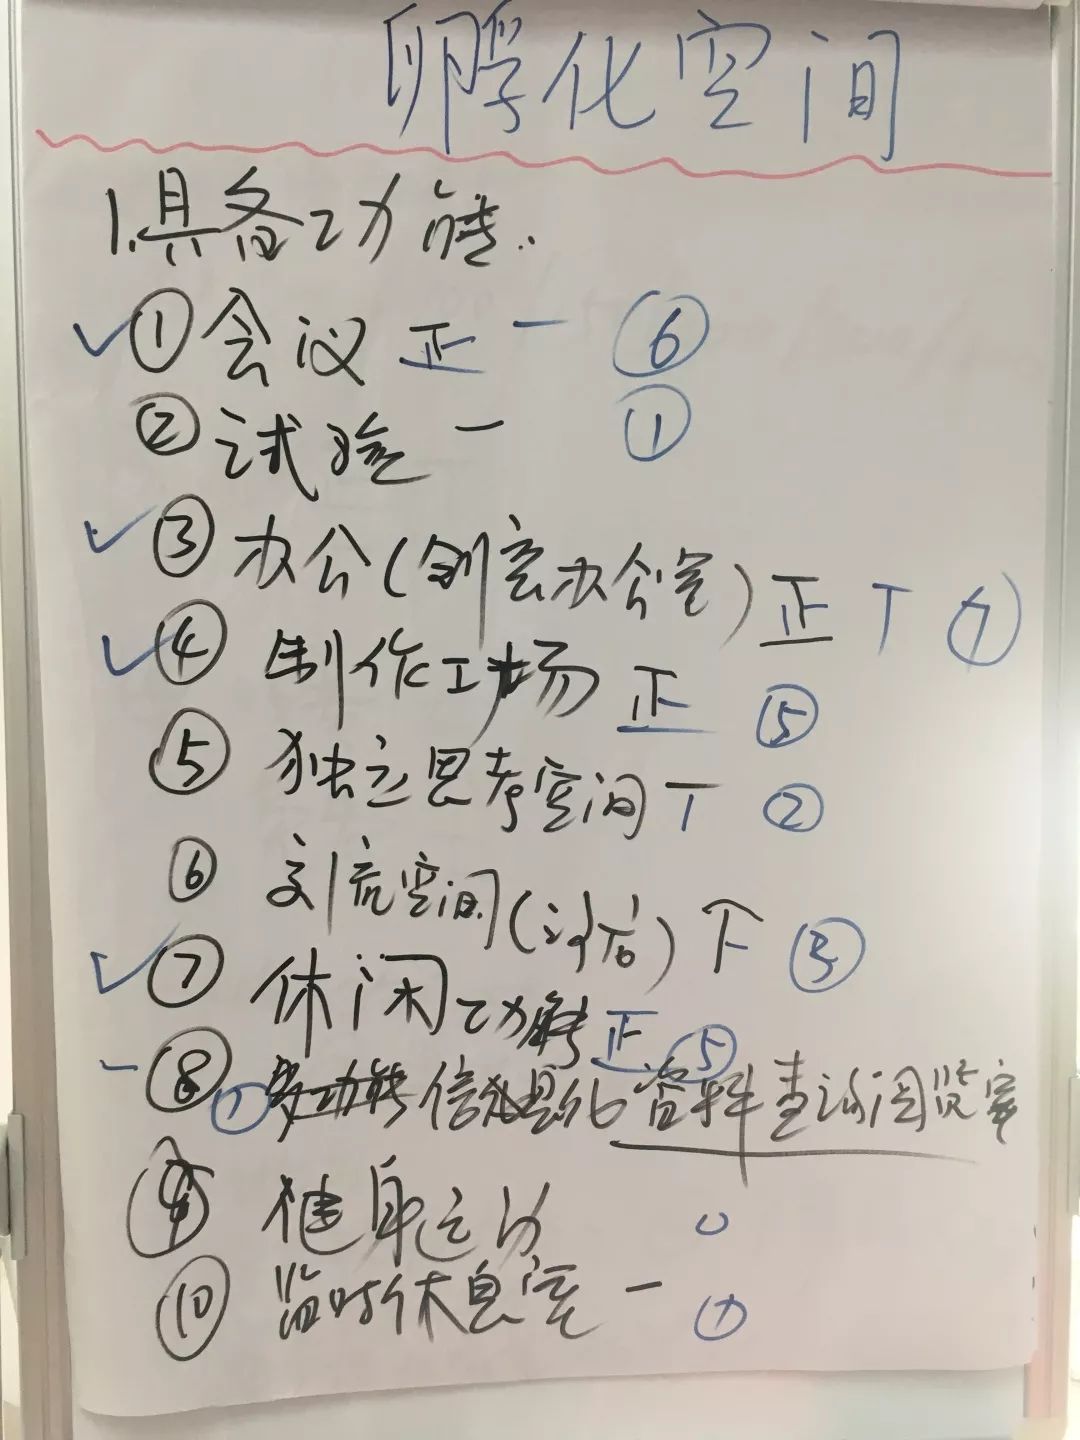 孵化空间
1.具备功能:
✓①会议 正一 ⑥
②试验 一 ①
✓③办公(创客办公室) 正丅 ⑦
✓④制作工场 正 ⑤
⑤独立思考空间 丅 ②
⑥交流空间(讨论) 下 ③
✓⑦休闲功能 正 ⑤
⑧ 信息化资料查询阅览室
⑨健身运动 0
⑩监时休息室 一 ①